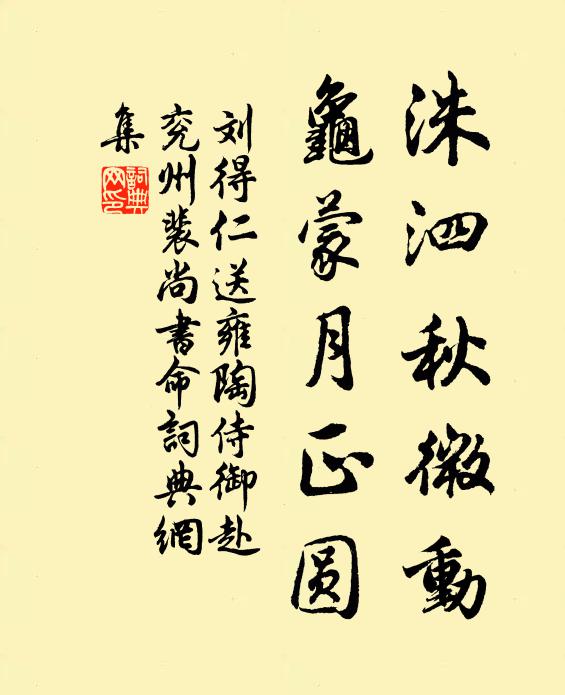 洙泗秋微動
龜蒙月正圆
刘得仁送雍陶侍御赴
兖州裴尚書命詞典網
集
詞典
网印